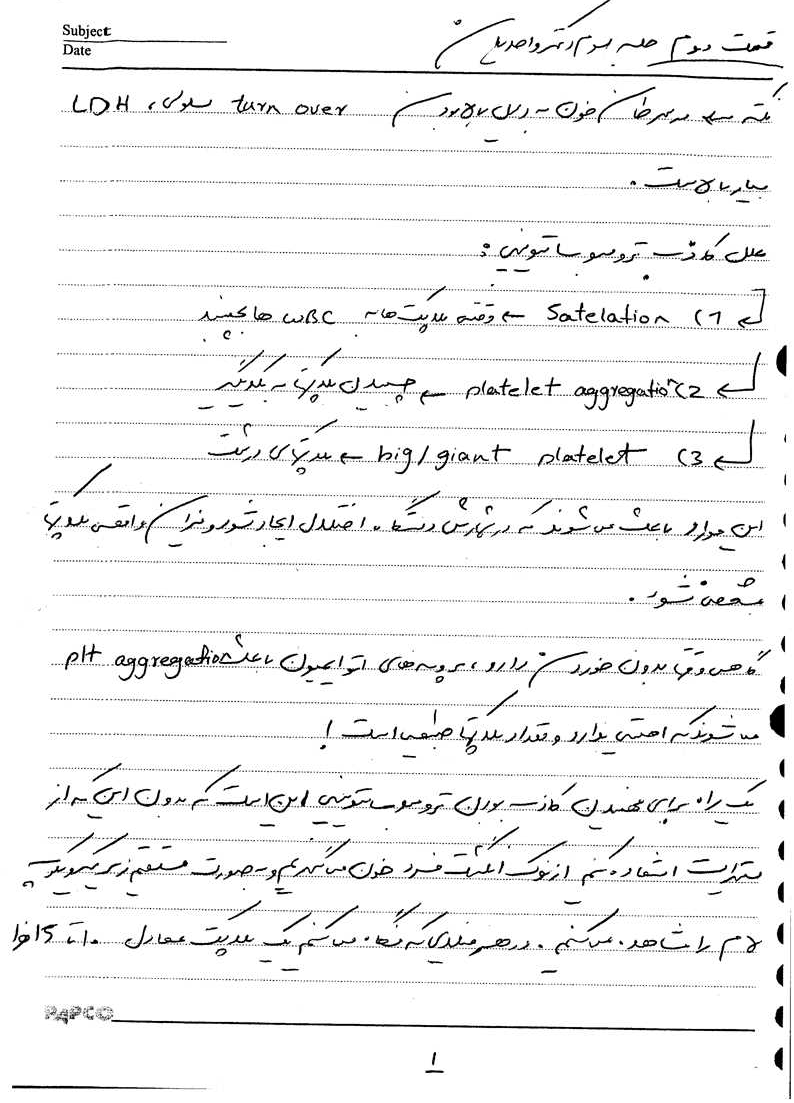 Subject:
Date
قسمت دوم جلسه سوم دکتر واحدیان
نکته ← در سرطان خون به دلیل بالا بودن turn over سلولی، LDH
بسیار بالاست.
علل کاذب ترومبوسایتوپنی:
1) Satelation ← وقتی پلاکت‌ها به WBC ها بچسبند
2) platelet aggregation ← چسبیدن پلاکتها به یکدیگر
3) big/giant platelet ← پلاکتهای درشت
این موارد باعث می‌شوند که در شمارش دستگاه، اختلال ایجاد شود و میزان واقعی پلاکتها
مشخص نشود.
گاهی وقتا بدون خوردن دارو، پروسه‌های اتوایمیون باعث plt aggregation
می‌شوند که اهمیتی ندارد و مقدار پلاکتها طبیعی است!
یک راه برای فهمیدن کاذب بودن ترومبوسایتوپنی این است که بدون این که از
سیترات استفاده کنیم از نوک انگشت فرد خون می‌گیریم و به صورت مستقیم زیر میکروسکوپ
لام را مشاهده می‌کنیم. در هر فیلدی که نگاه می‌کنیم یک پلاکت معادل ۱۰ تا ۱۵ هزار
PAPCO
۱